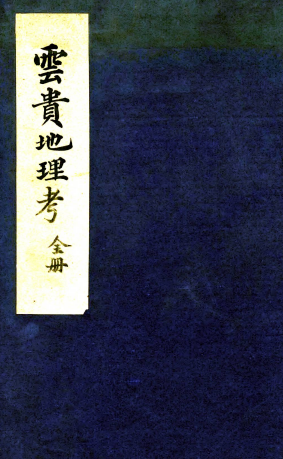 雲貴地理考
全册